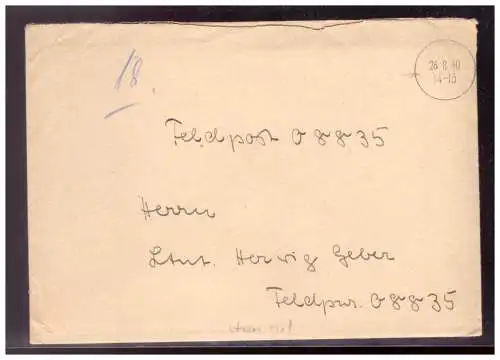 18.
26.8.40
14-15
Feldpost 08835
Herrn
Ltnt. Herwig Geber
Feldpnr. 08835